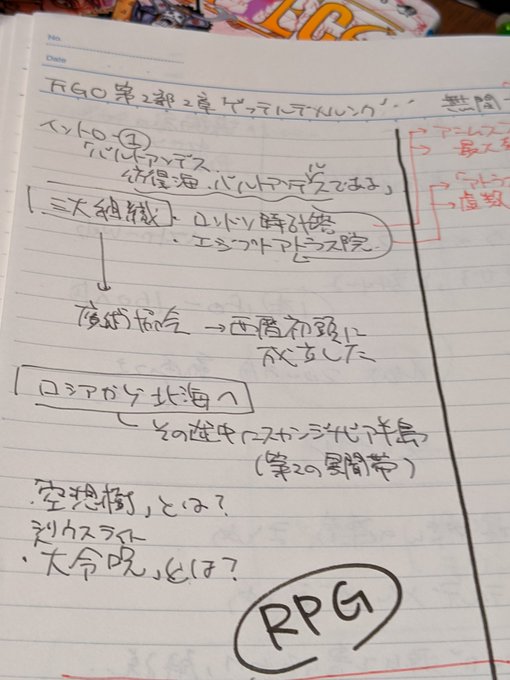 No.
Date
FGO 第2部2章 ゲッテルデメルング… 無間
イントロ-①
「バルトアンデス
彷徨海、バルトアンデルスである」
三大組織 ・ロンドン時計塔
・エジプトアトラス院
魔術協会 → 西暦初頭に
成立した
ロシアから北海へ
その途中にスカンジナビア半島
(第2の異聞帯)
・空想樹、とは?
シリウスライト
・大令呪、とは?
RPG
→ アニムスフ
→ 最大
→ 「アトラ
→ 虚数